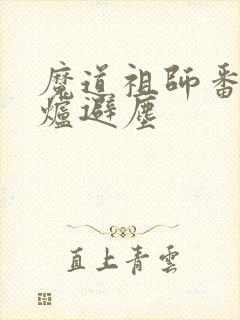 魔道祖師番
爐避塵
直上青雲